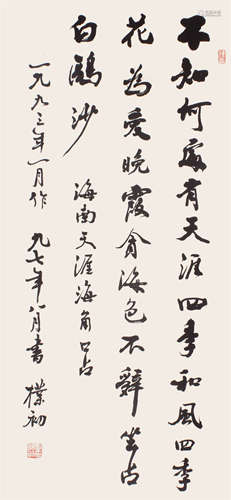 不知何處有天涯四季和風四季
花為愛晚霞貪海色不辭坐占
白鷗沙 海南天涯海角口占
一九九三年一月作 九七年八月書 樸初